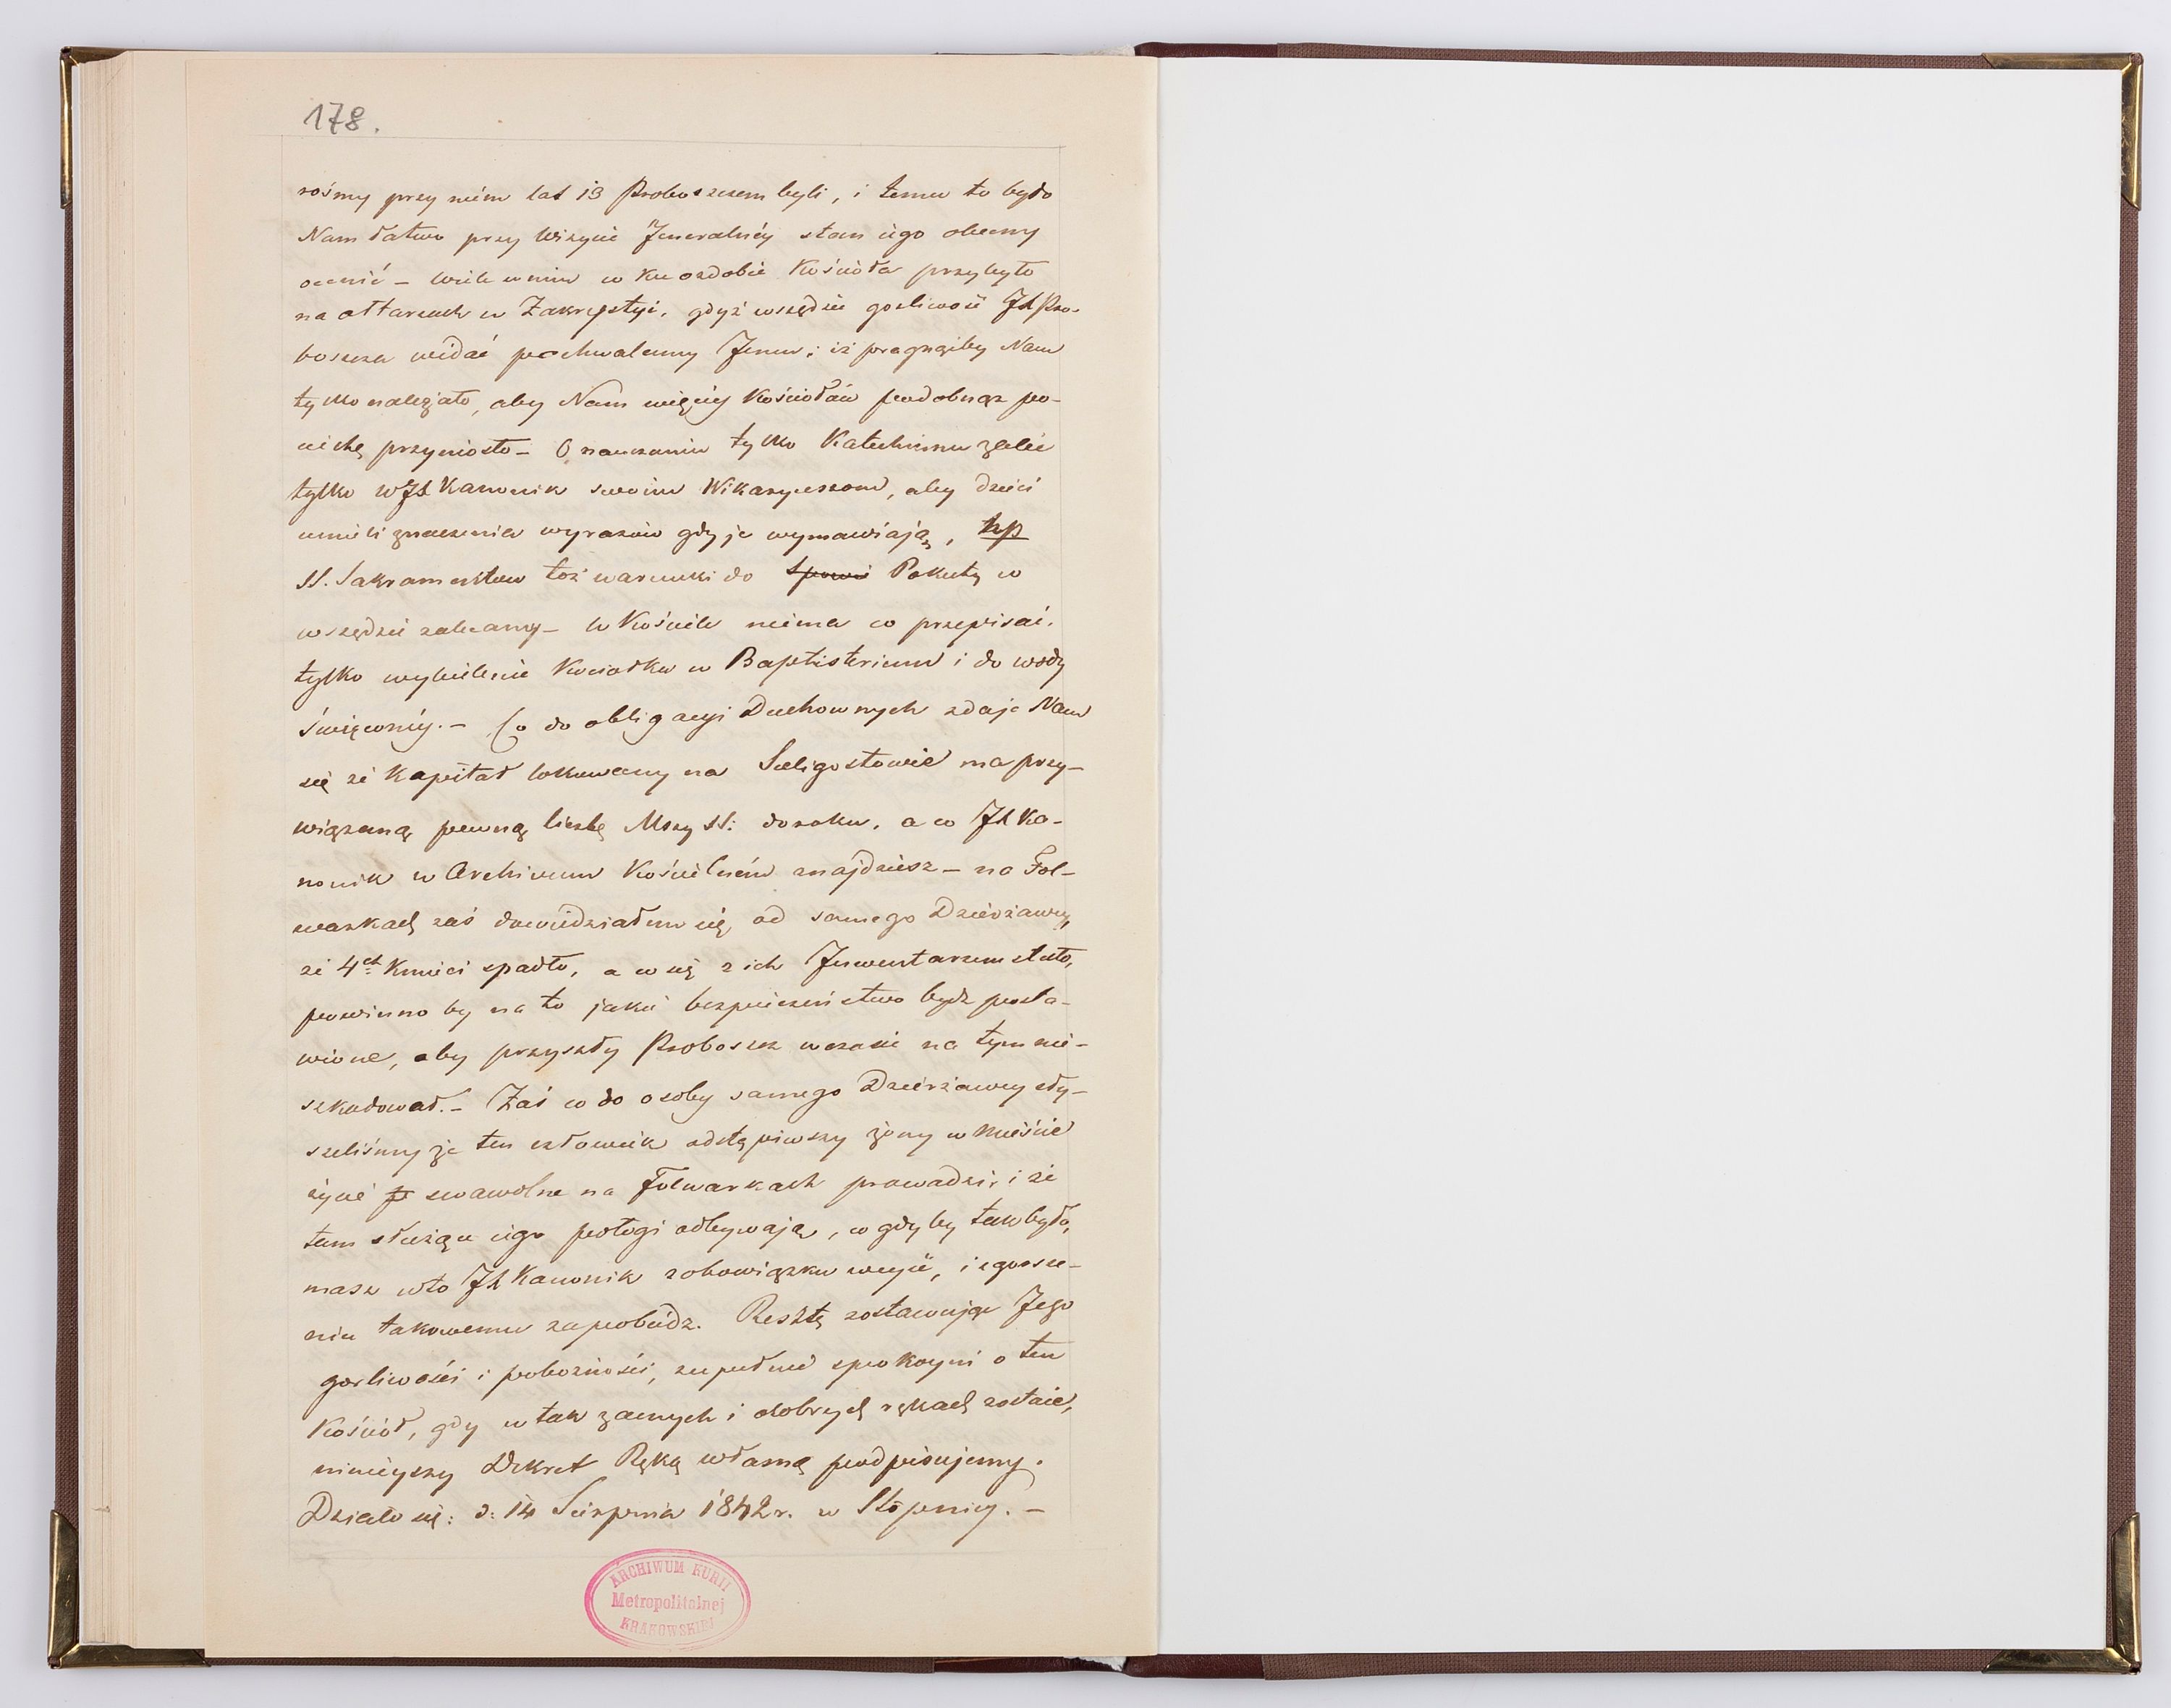 178.
rośmy przy niém lat 13 Proboszczem byli, i temu to było
Nam łatwo przy Wizycie Jeneralnéy stan iego obecny
ocenić – wiele w nim w ku ozdobie Kościoła przybyło
na ołtarzach w Zakrystyi, gdyż wszędzie gorliwość JX Pro-
boszcza widać pochwalemy Jemu; iż pragnąiby Nam
tylko należało, aby Nam więcéy Kościołów podobnąż po-
ciechę przyniosło – O nauczaniu tylko Katechizmu zaleci
tylko WJX Kanonik swoim Wikaryuszom, aby dzieci
umieli znaczenia wyrazów gdy je wymawiają, np
SS. Sakramentow toż warunki do Spowi Pokuty w
wszędzie zalecamy – W Kościele niema co przepisać.
tylko wybielenie Kociołka w Baptisterium i do wody
święconéy. – Co do obligacyi Duchownych zdaje Nam
się że Kapitał lokowany na Suligostowie ma przy-
wiązaną pewną liczbę Mszy SS: do roku, a co JX Ka-
nonik w Archivum Kościelném znajdziesz – na Fol-
warkach zaś dowiedziałem się od samego Dzierżawcy,
że 4ch Kmieci spadło, a co się z ich Inwentarzem stało,
powinno by na to jakie bezpieczeństwo bydz posta-
wione, aby przyszły Proboszcz w czasie na tym nie-
szkodował. – Zaś co do osoby samego Dzierżawcy sły-
szeliśmy że ten człowiek odstąpiwszy żony w mieście
życie je swawolne na Folwarkach prowadzi, i że
tam służące iego połogi odbywają, co gdyby tak było,
masz w to JX Kanonik z obowiązku weyść, i zgorsze-
niu takowemu zapobiedz. Resztę zostawując Jego
gorliwości i pobożności, zupełnie spokoyni o ten
Kościoł, gdy w tak zacnych i dobrych rękach zostaie,
ninieyszy Dekret Ręką własną podpisujemy.
Działo się: d: 14 Sierpnia 1842 r. w Stopnicy. –
ARCHIWUM KURII
Metropolitalnej
KRAKOWSKIEJ